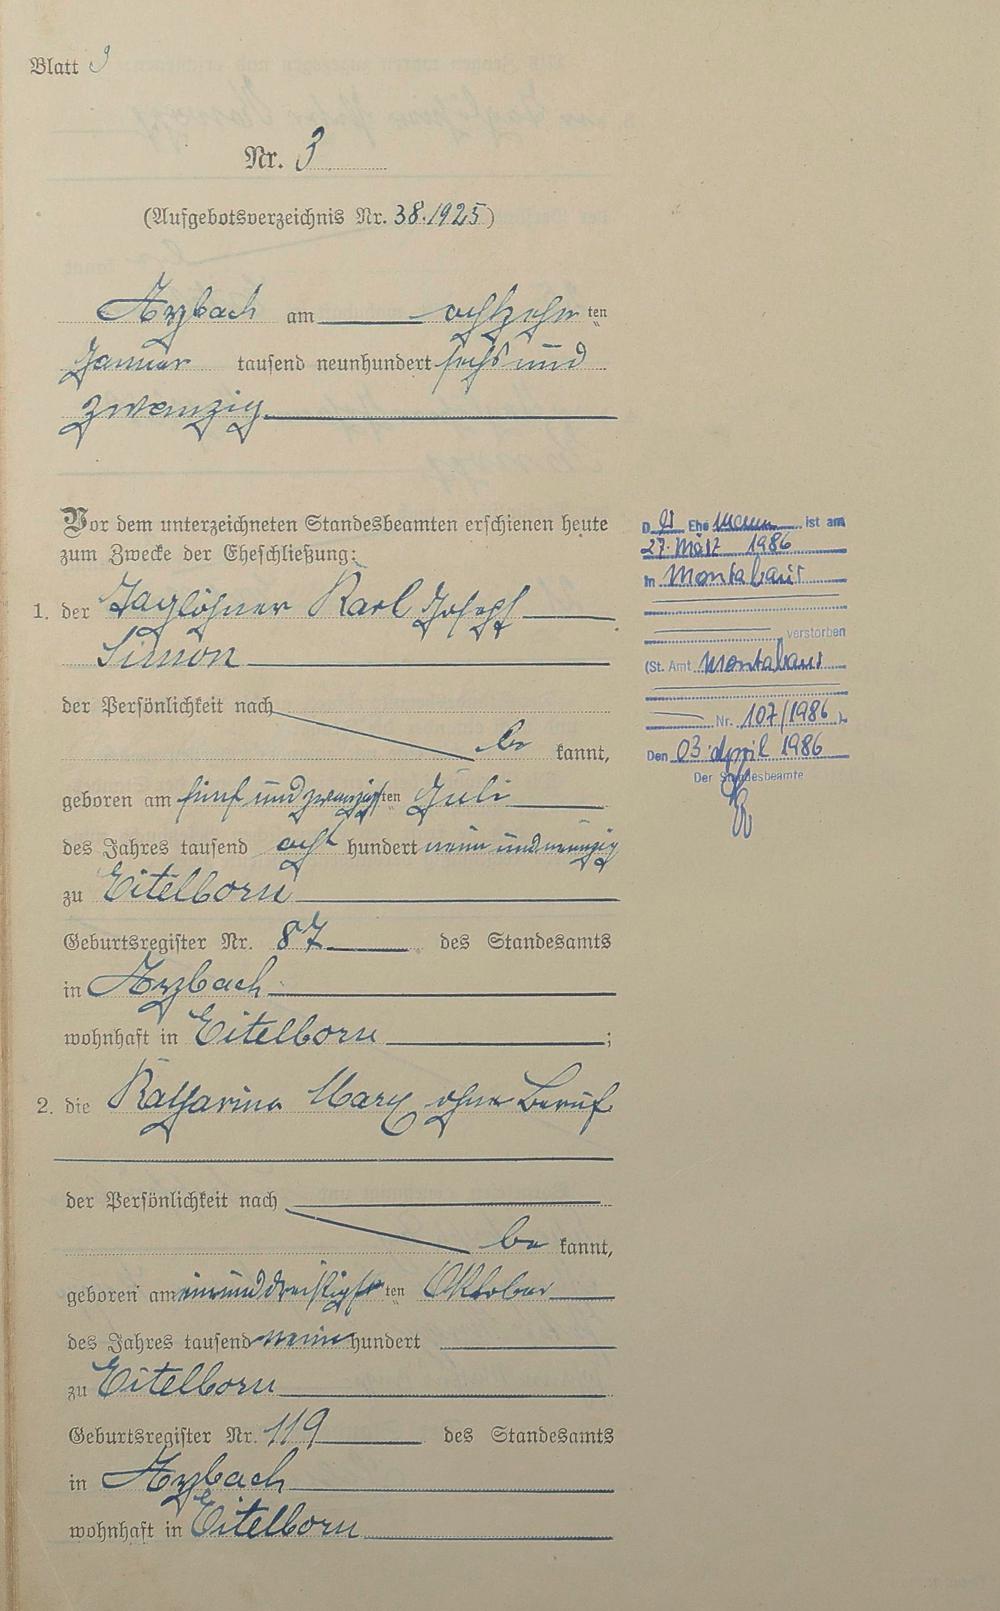 Blatt 3
Nr. 3
(Aufgebotsverzeichnis Nr. 38.1925)
Arzbach am achtzehnten
Januar tausend neunhundert sechs und
zwanzig
Vor dem unterzeichneten Standesbeamten erschienen heute
zum Zwecke der Eheschließung:
1. der Taglöhner Karl Joseph
Simon
der Persönlichkeit nach
be kannt,
geboren am fünf und zwanzigsten Juli
des Jahres tausend acht hundert neun und neunzig
zu Eitelborn
Geburtsregister Nr. 87 des Standesamts
in Arzbach
wohnhaft in Eitelborn;
2. die Katharina Marx ohne Beruf
der Persönlichkeit nach
be kannt,
geboren am einunddreißigsten Oktober
des Jahres tausend neun hundert
zu Eitelborn
Geburtsregister Nr. 119 des Standesamts
in Arzbach
wohnhaft in Eitelborn
D er Ehe mann ist am
27. März 1986
in Montabaur
verstorben
(St. Amt Montabaur
Nr. 107/1986)
Den 03. April 1986
Der Standesbeamte